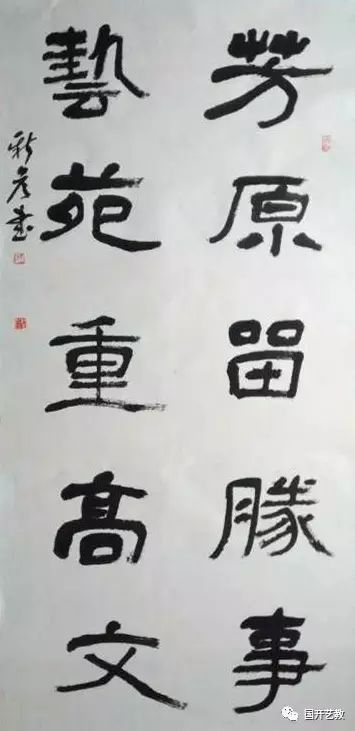 芳原留勝事
藝苑重高文
新彦书
国开艺教